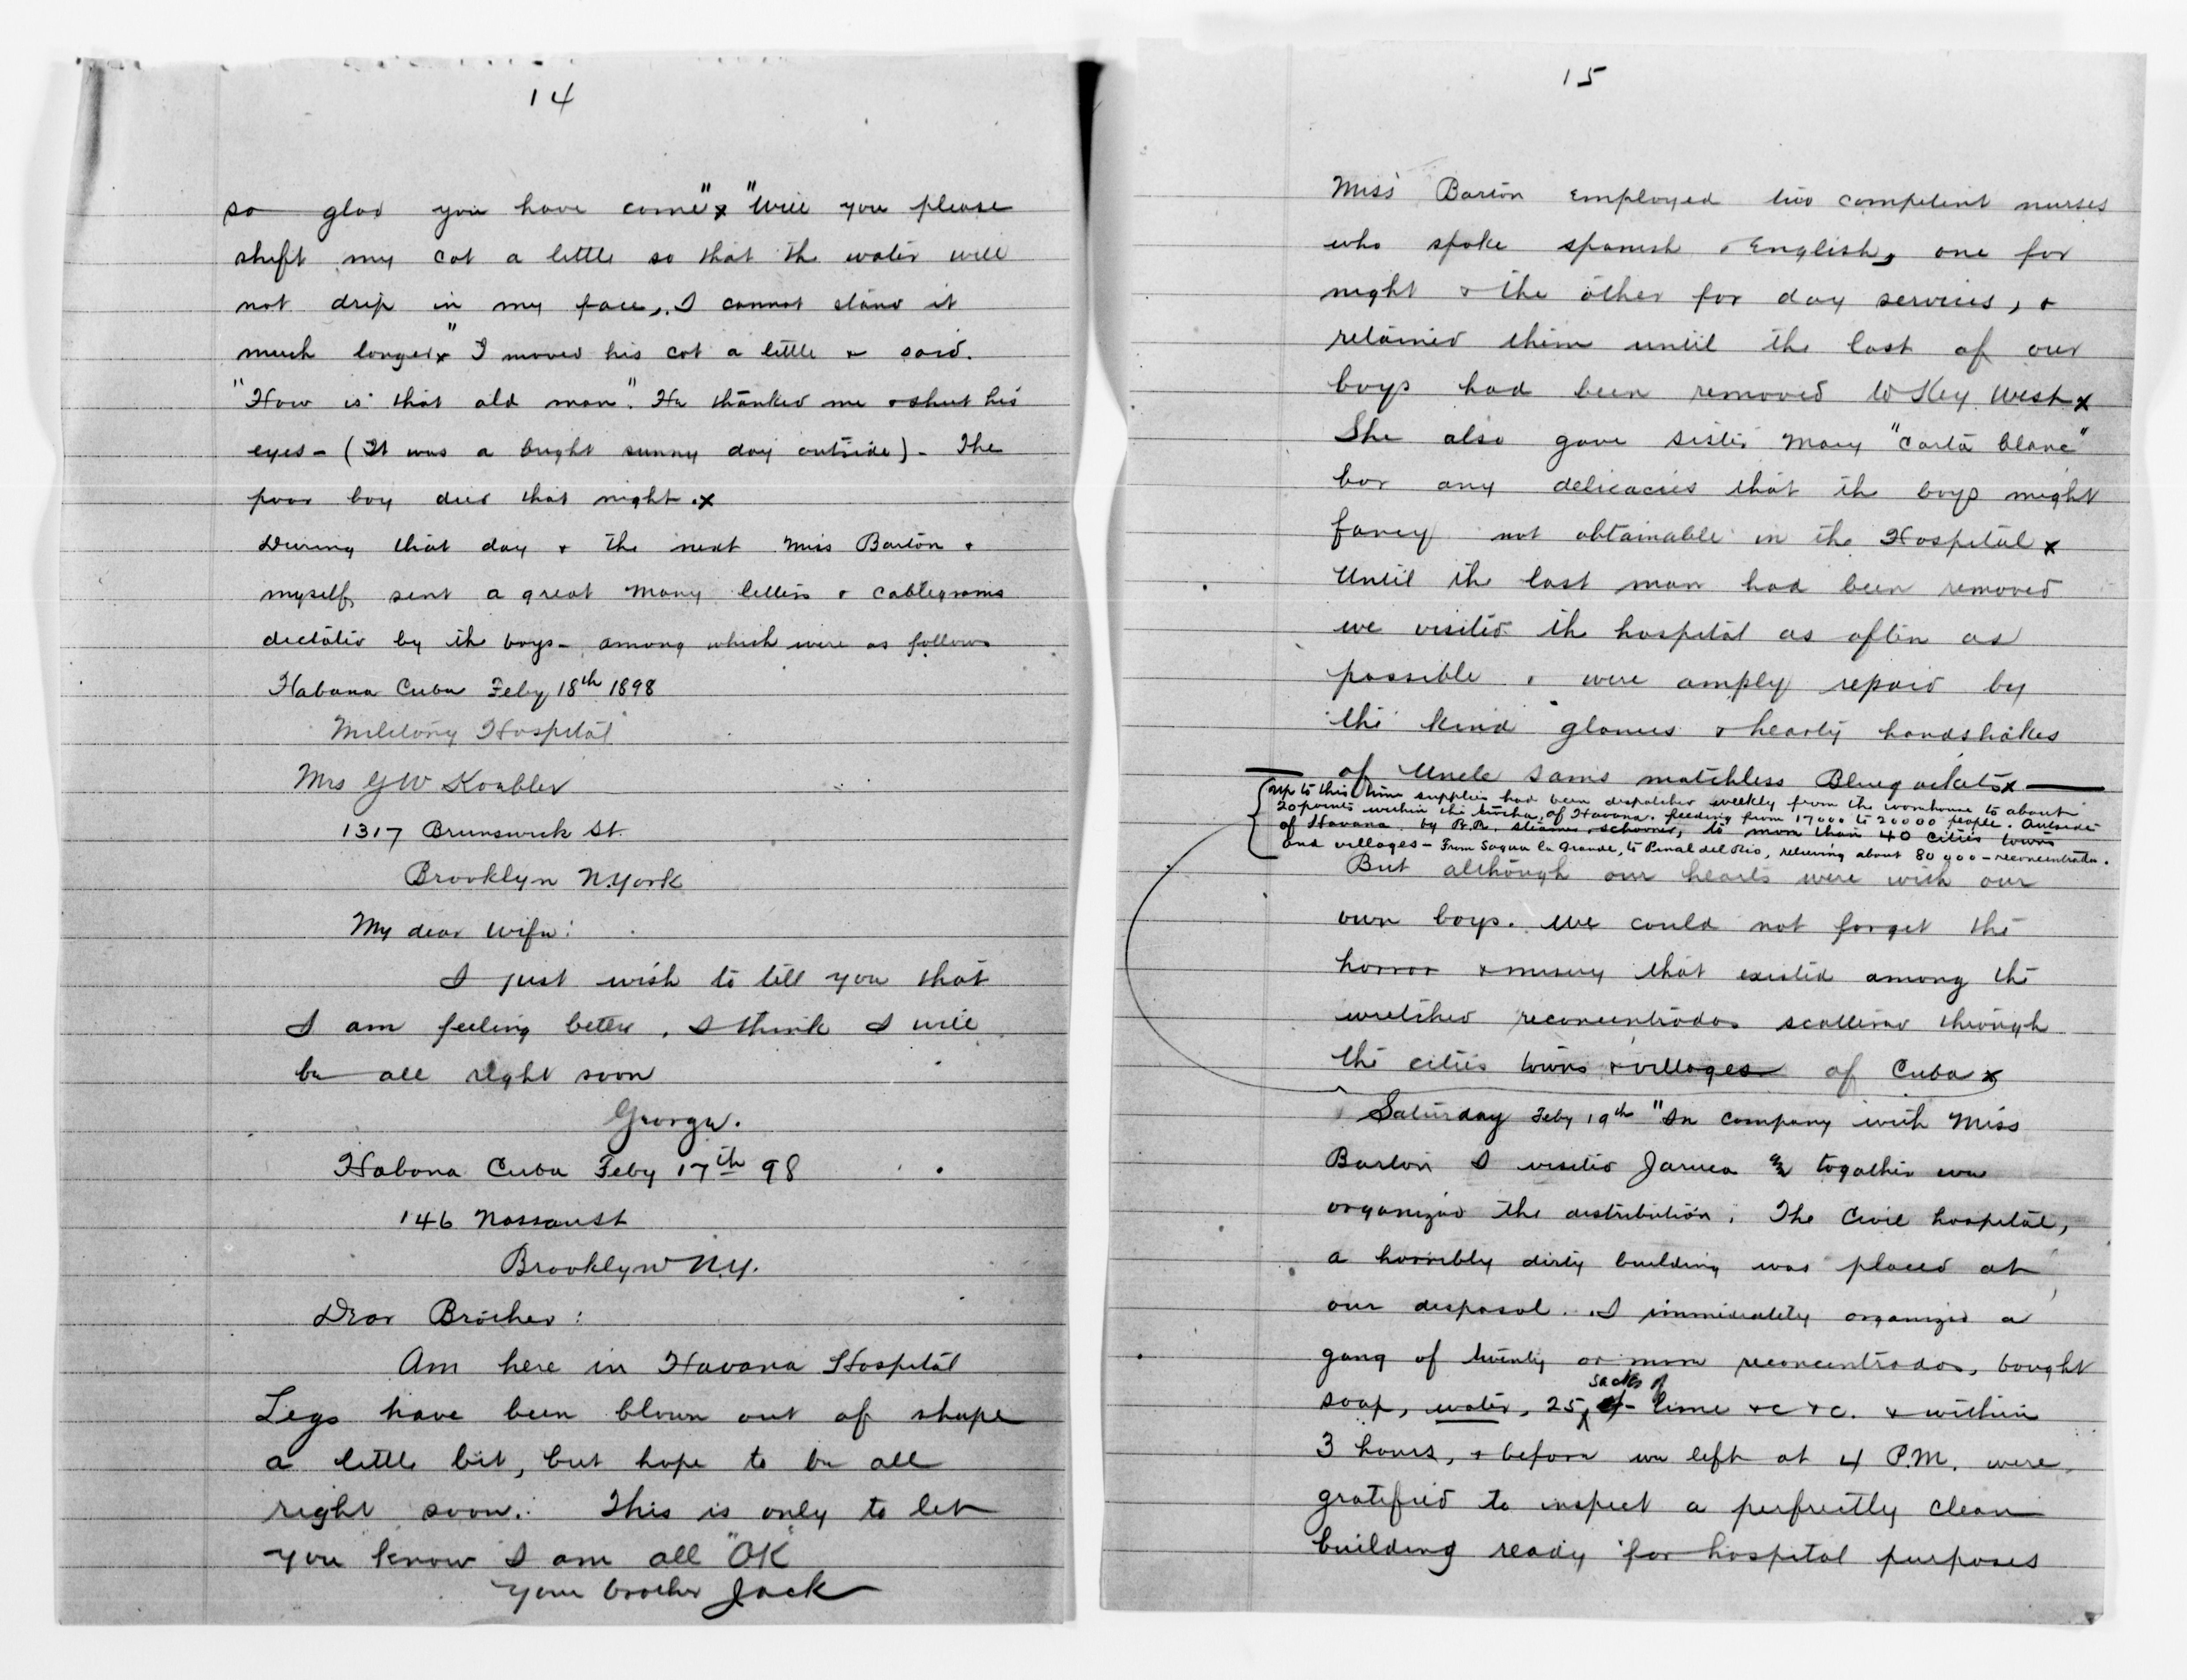 14
so glad you have come"x "Will you please
shift my cot a little so that the water will
not drip in my face, I cannot stand it
much longerx" I moved his cot a little & said.
"How is that old man". He thanked me & shut his
eyes - (It was a bright sunny day outside) - The
poor boy died that night.x
During that day & the next Miss Barton &
myself, sent a great many letters & cablegrams
dictated by the boys - among which were as follows
Habana Cuba Feby 18th 1898
Military Hospital
Mrs G W Koebler
1317 Brunswick St.
Brooklyn N.York
My dear Wife:
I just wish to tell you that
I am feeling better, I think I will
be all right soon
George.
Habana Cuba Feby 17th 98
146 Nassau St
Brooklyn N.Y.
Dear Brother:
Am here in Havana Hospital
Legs have been blown out of shape
a little bit, but hope to be all
right soon. This is only to let
you know I am all "OK"
Your brother Jack
15
Miss Barton employed two competent nurses
who spoke spanish & English, one for
night & the other for day services, &
retained them until the last of our
boys had been removed to Key Westx
She also gave sister Mary "Carta blanc"
for any delicacies that the boys might
fancy not obtainable in the Hospitalx
Until the last man had been removed
we visited the hospital as often as
possible & were amply repaid by
the kind glances & hearty handshakes
of Uncle Sams matchless Bluejacketsx
Up to this time supplies had been dispatched weekly from the warehouse to about
20 points within the trocha, of Havana. feeding from 17000 to 20000 people. Outside
of Havana, by R.R. steamer, schooner, to more than 40 cities towns
and villages - From Sagua la Grande, to Pinal del Rio, relieving about 80000 - reconcentrados.
But although our hearts were with our
own boys. we could not forget the
horror & misery that existed among the
wretched reconcentrados scattered through
the cities towns & villages of Cubax
Saturday Feby 19th "In company with Miss
Barton I visited Jaruca & together we
organized the distribution. The Civil hospital,
a horribly dirty building was placed at
our disposal. I immidiately organized a
gang of twenty or more reconcentrados, bought
soap, water, 25, sacks of lime &c &c. & within
3 hours, & before we left at 4 P.M. were
gratified to inspect a perfrectly clean
building ready for hospital purposes